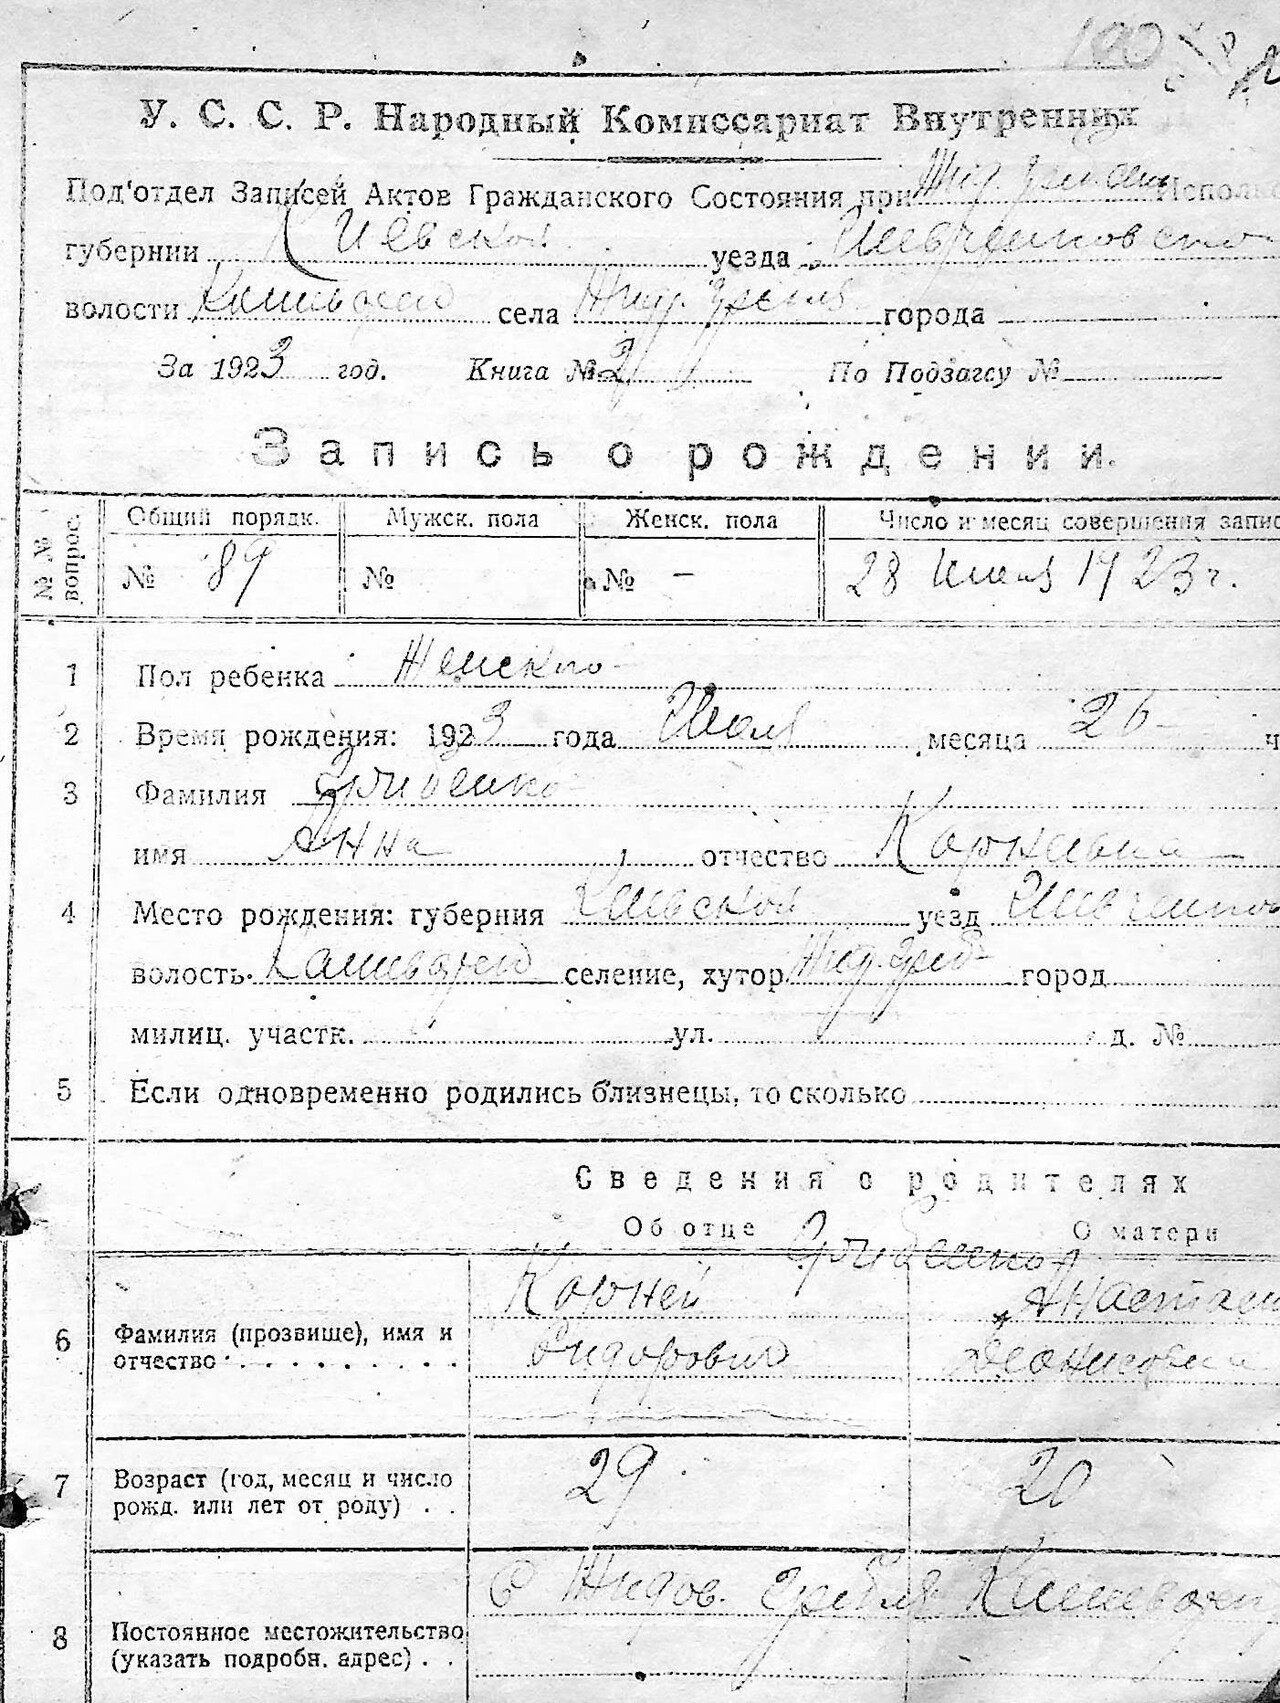 У. С. С. Р. Народный Комиссариат Внутренних
Под'отдел Записей Актов Гражданского Состояния при Жид. Исполк
губернии Киевской уезда Шевченковско
волости села Жид. Гребля города
За 1923 год. Книга № 2 По Подзагсу №
Запись о рождении.
№ № вопрос.
Общий порядк. Мужск. пола Женск. пола Число и месяц совершения запис
№ 89 № № — 28 1923 г.
1 Пол ребенка Женского
2 Время рождения: 1923 года Июля месяца 26 ч
3 Фамилия Грибенко
имя Анна, отчество Корнеевна
4 Место рождения: губерния Киевской уезд Шевченков
волость селение, хутор Жид. Греб- город
милиц. участк. ул. д. №
5 Если одновременно родились близнецы, то сколько
Сведения о родителях
Об отце О матери
Корней Анастаси
6 Фамилия (прозвище), имя и
отчество Сидорович
7 Возраст (год, месяц и число
рожд. или лет от роду) . . 29 20
с Жидов. Гребля
8 Постоянное местожительство
(указать подробн. адрес) . .